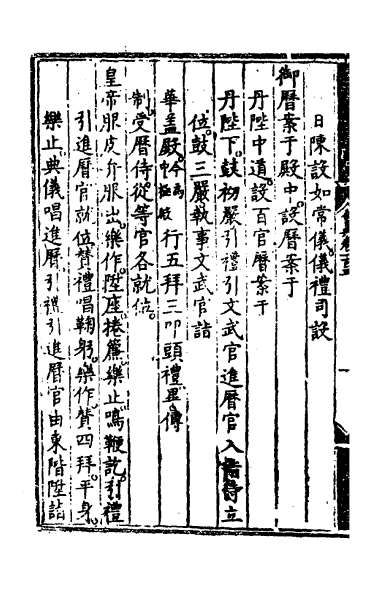 日陳設如常儀儀禮司設
御曆案于殿中設曆案于
丹陛中道設百官曆案于
丹陛下鼓初嚴引禮引文武官進曆官入 立
位鼓三嚴執事文武官詣
華盖殿今為中極殿行五拜三叩頭禮畢傳
制受曆侍從等官各就位
皇帝服皮弁服出樂作陞座捲簾樂止鳴鞭訖引禮
引進曆官就位贊禮唱鞠躬樂作贊四拜平身
樂止典儀唱進曆引禮引進曆官由東階陞詣